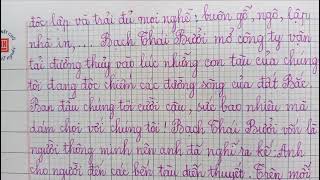 độc lập và trải đủ mọi nghề: buôn gỗ, ngô, lập
nhà in,... Bạch Thái Bưởi mở công ty vận
tải đường thủy vào lúc những con tàu của chúng
tôi đang độc chiếm các đường sông của đất Bắc.
Ban đầu chúng tôi cười cậu, sức bao nhiêu mà
dám chọi với chúng tôi! Bạch Thái Bưởi vốn là
người thông minh nên anh ta nghĩ ra kế: Anh
cho người đến các bến tàu diễn thuyết. Trên mỗi